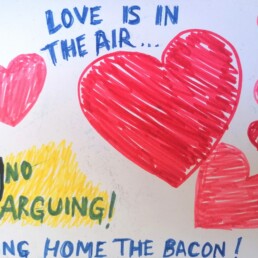 LOVE IS IN
THE AIR...
NO
ARGUING!
HOME THE BACON!